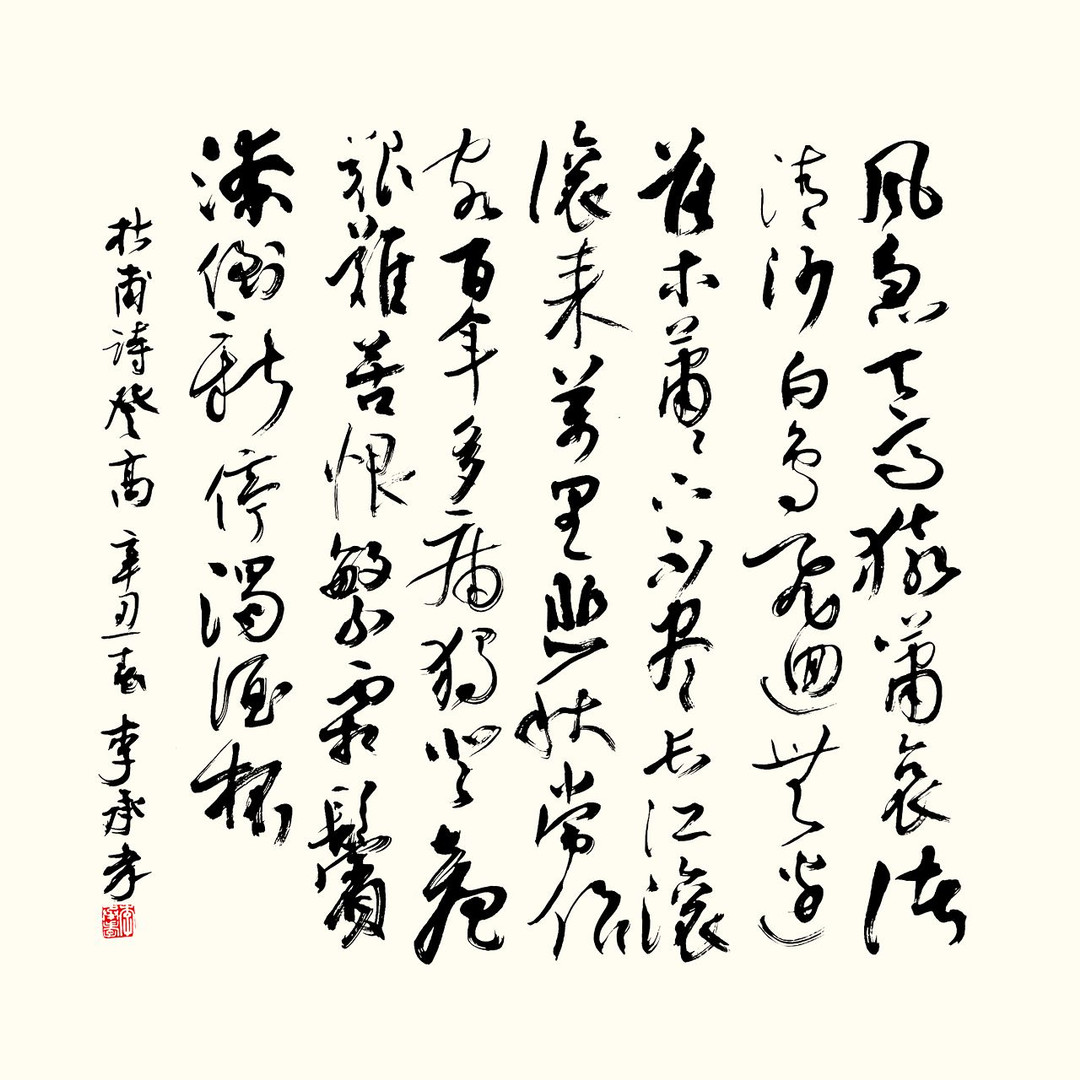 風急天高猿嘯哀渚
清沙白鳥飛迴無邊
落木蕭〻下不尽長江滾
滾来萬里悲秋常作
客百年多病獨登臺
艱難苦恨繁霜鬢
潦倒新停濁酒杯
杜甫詩登高 辛丑春 李承